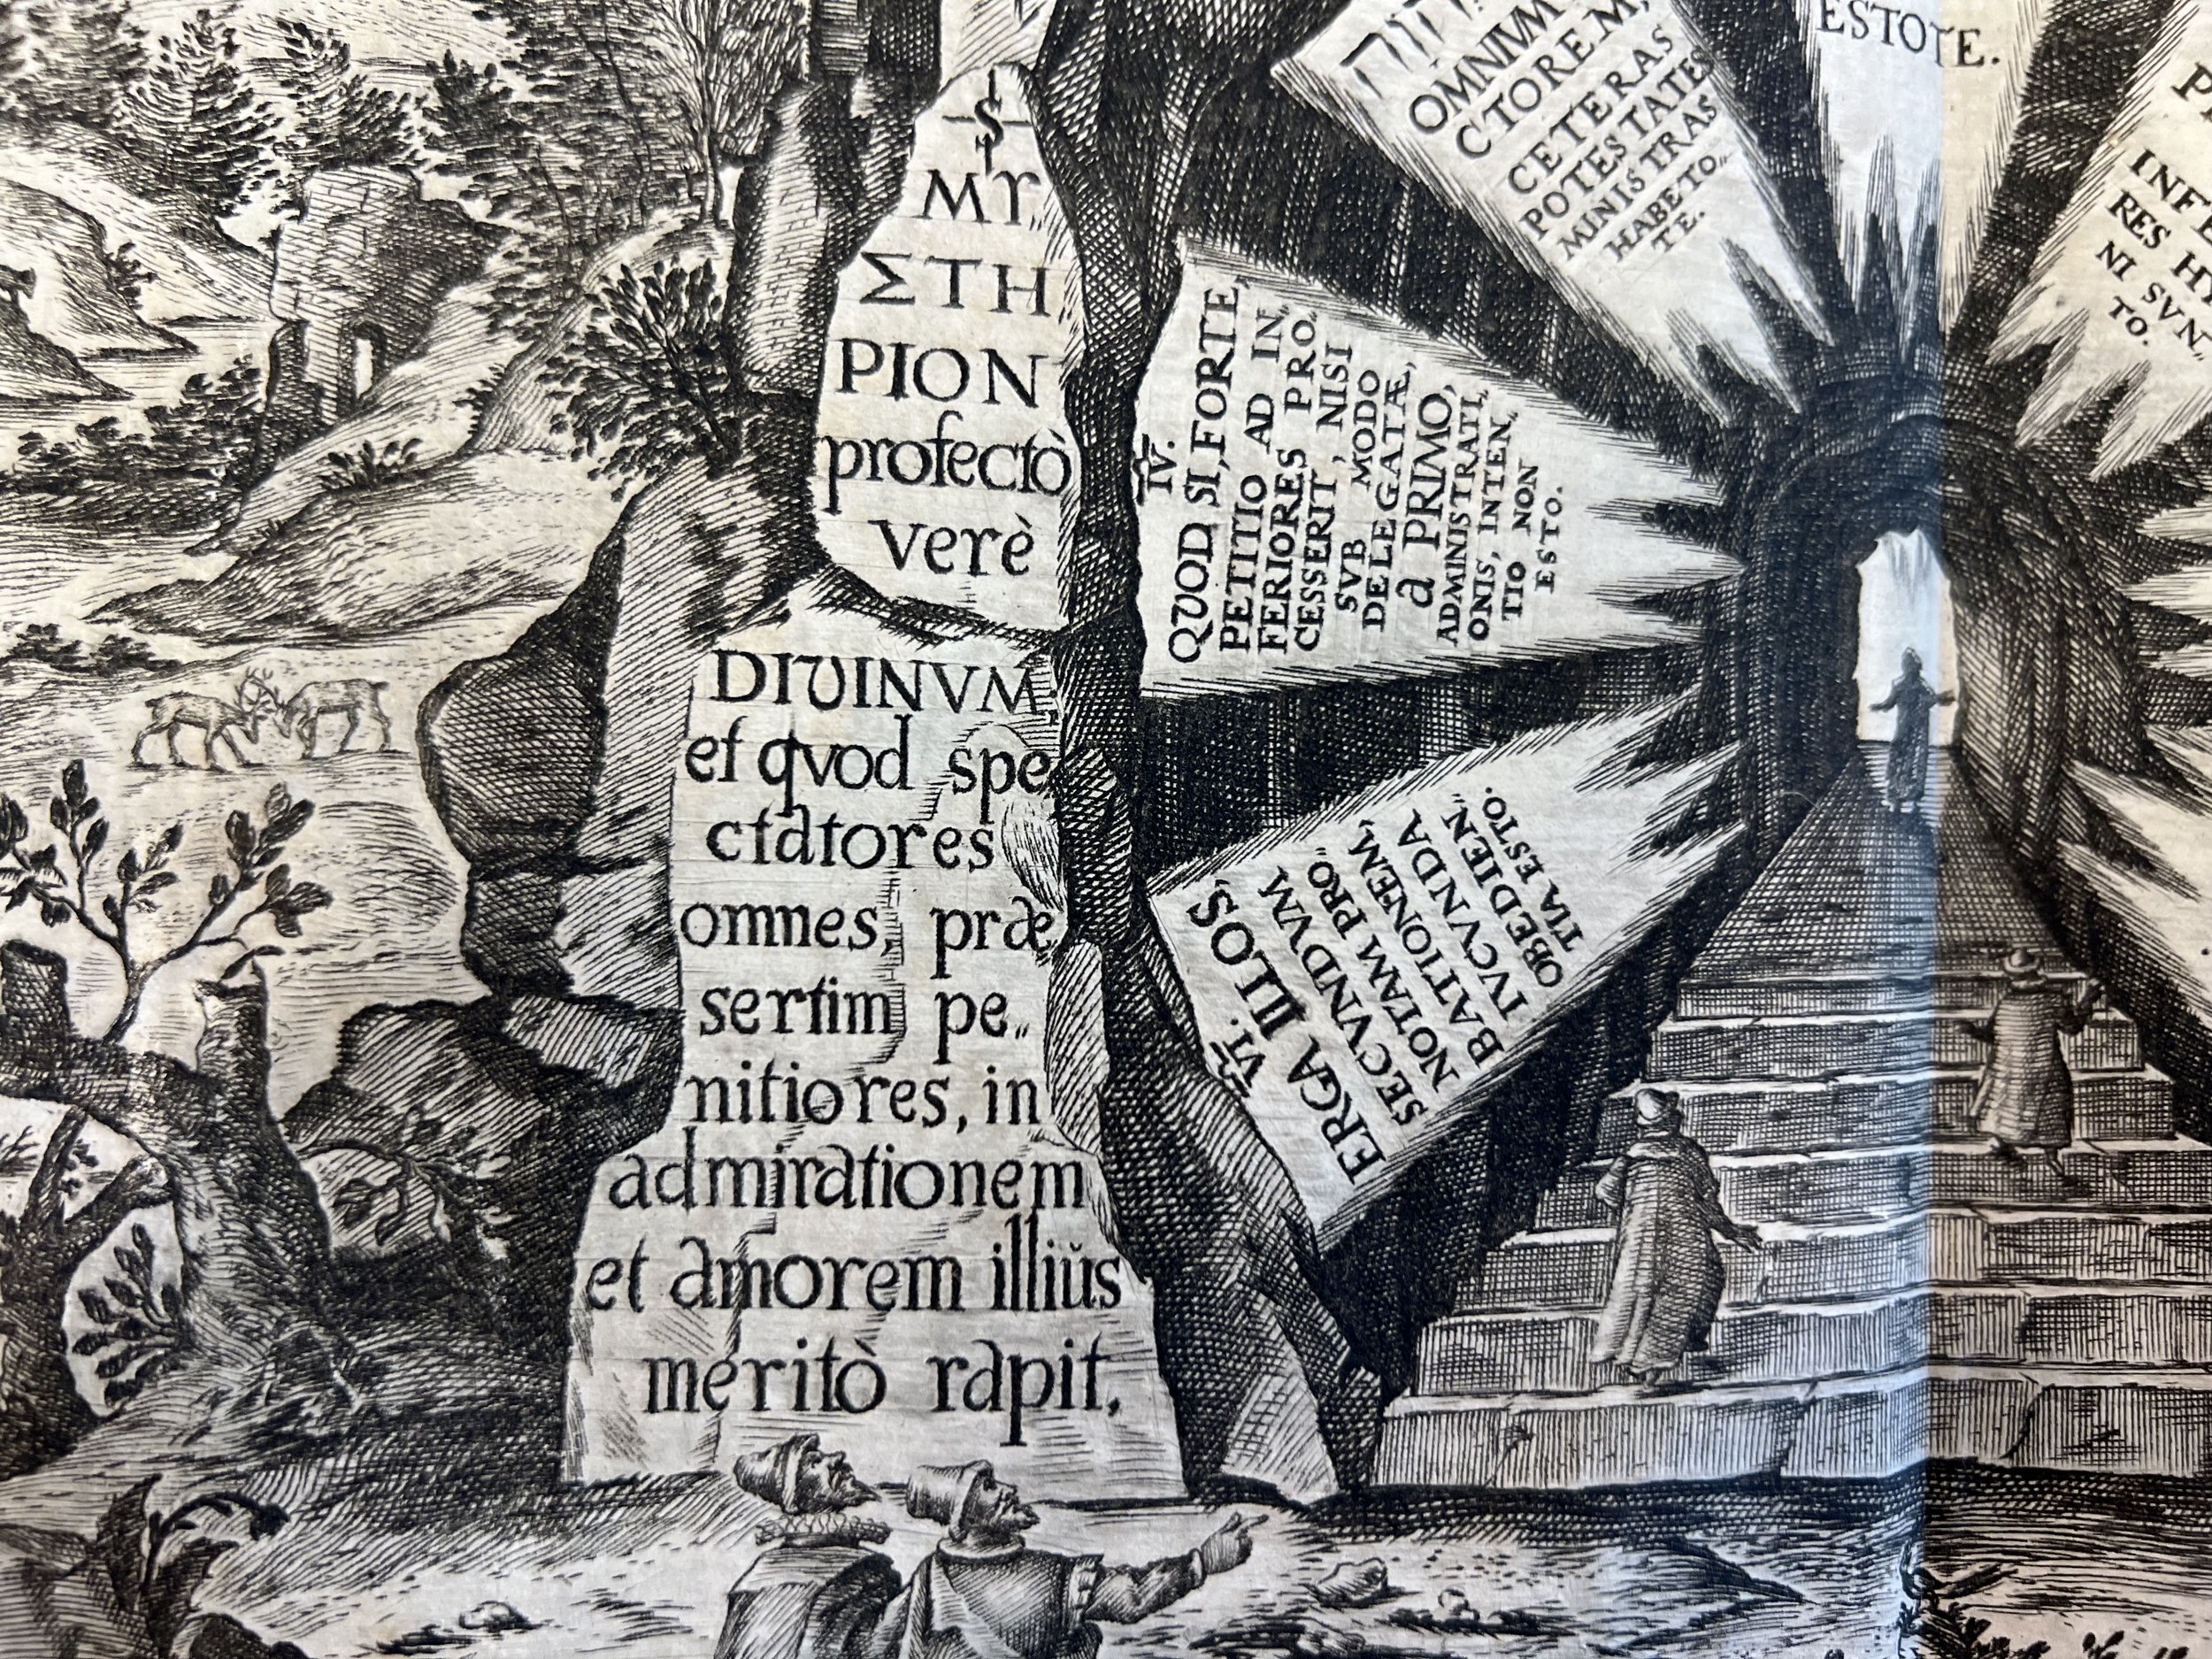 ΜΥ,
ΣΤΗ
ΡΙΟΝ
profectò
verè
DIVINVM,
et qvod spe
ctatores
omnes, præ
sertim pe„
nitiores, in
admirationem
et amorem illius
meritò rapit.
VI.
ERGA ILLOS,
SECVNDVM
NOTAM PRO„
BATIONEM,
IVCVNDA
OBEDIEN„
TIA ESTO.
IV.
QVOD SI, FORTE,
PETITIO AD IN„
FERIORES PRO„
CESSERIT, NISI
SVB MODO
DELEGATÆ,
a PRIMO,
ADMINISTRATI„
ONIS, INTEN„
TIO NON
ESTO.
OMNIVM
CTOREM,
CETERAS
POTESTATES
MINISTRAS
HABETO„
TE.
ESTOTE.
RES HY
NI SVN„
TO.